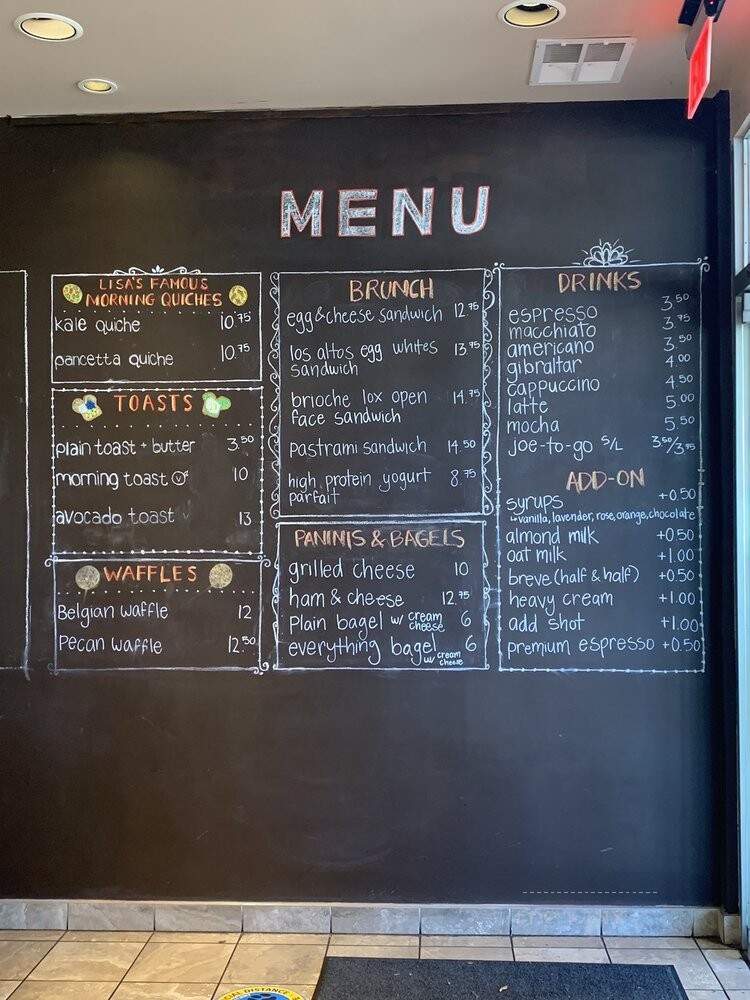 MENU
LISA'S FAMOUS
MORNING QUICHES
kale quiche 10.75
pancetta quiche 10.75
TOASTS
plain toast + butter 3.50
morning toast V 10
avocado toast 13
WAFFLES
Belgian waffle 12
Pecan waffle 12.50
BRUNCH
egg & cheese sandwich 12.75
los altos egg whites 13.75
sandwich
brioche lox open 14.75
face sandwich
pastrami sandwich 14.50
high protein yogurt 8.75
parfait
PANINIS & BAGELS
grilled cheese 10
ham & cheese 12.75
Plain bagel w/ cream cheese 6
everything bagel w/ cream cheese 6
DRINKS
espresso 3.50
macchiato 3.75
americano 3.50
gibraltar 4.00
cappuccino 4.50
latte 5.00
mocha 5.50
joe-to-go S/L 3.50/3.75
ADD-ON
syrups +0.50
vanilla, lavender, rose, orange, chocolate
almond milk +0.50
oat milk +1.00
breve (half & half) +0.50
heavy cream +1.00
add shot +1.00
premium espresso +0.50
DISTANCE